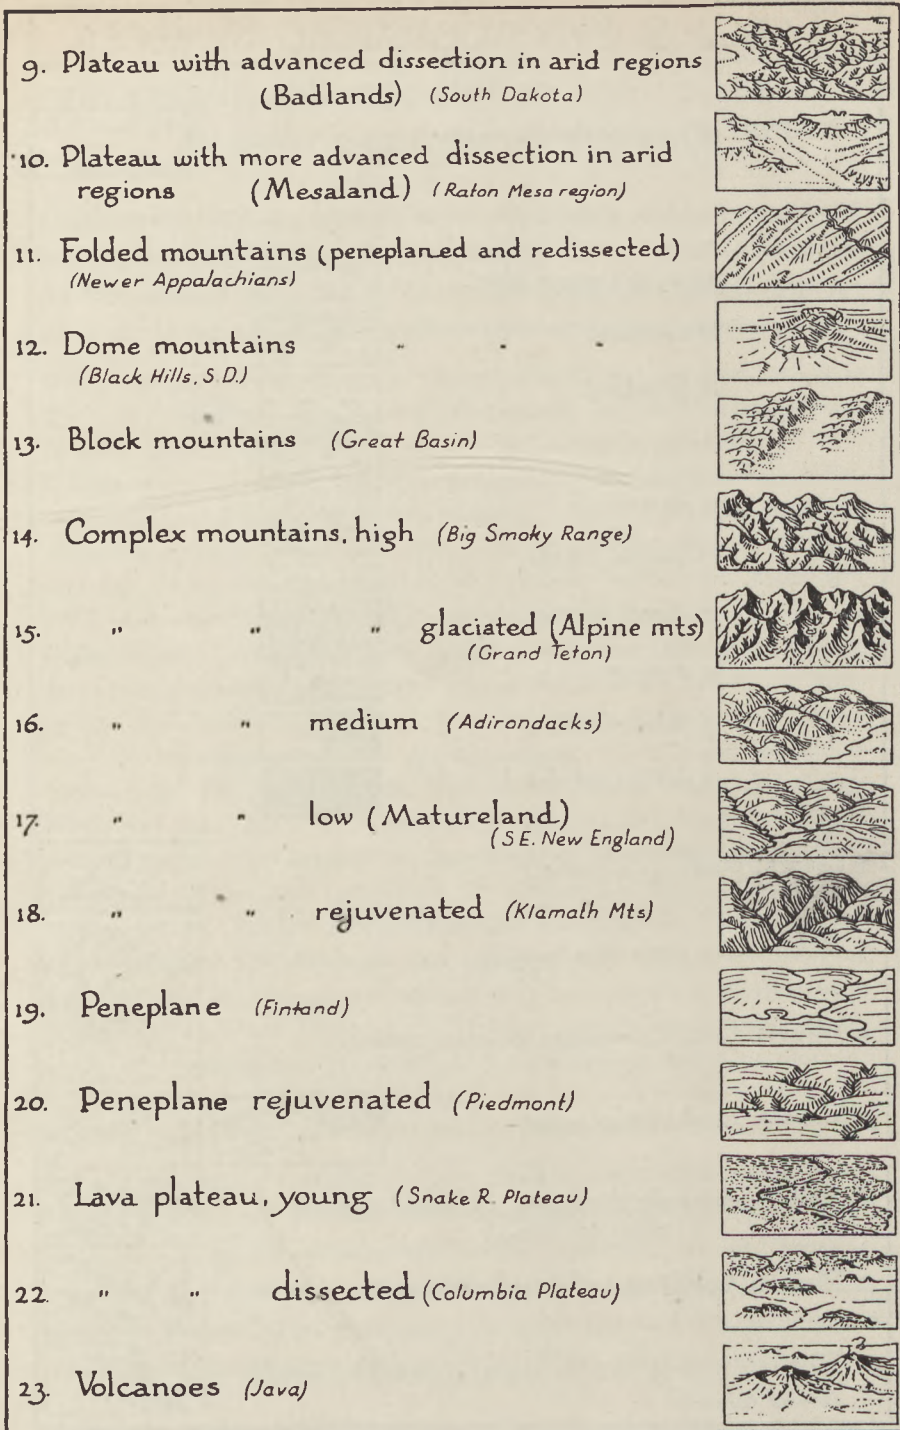 9. Plateau with advanced dissection in arid regions
(Badlands) (South Dakota)
10. Plateau with more advanced dissection in arid
regions (Mesaland) (Raton Mesa region)
11. Folded mountains (peneplaned and redissected)
(Newer Appalachians)
12. Dome mountains " " "
(Black Hills, S.D.)
13. Block mountains (Great Basin)
14. Complex mountains, high (Big Smoky Range)
15. " " " glaciated (Alpine mts)
(Grand Teton)
16. " " medium (Adirondacks)
17. " " low (Matureland)
(S.E. New England)
18. " " rejuvenated (Klamath Mts)
19. Peneplane (Finland)
20. Peneplane rejuvenated (Piedmont)
21. Lava plateau, young (Snake R. Plateau)
22. " " dissected (Columbia Plateau)
23. Volcanoes (Java)